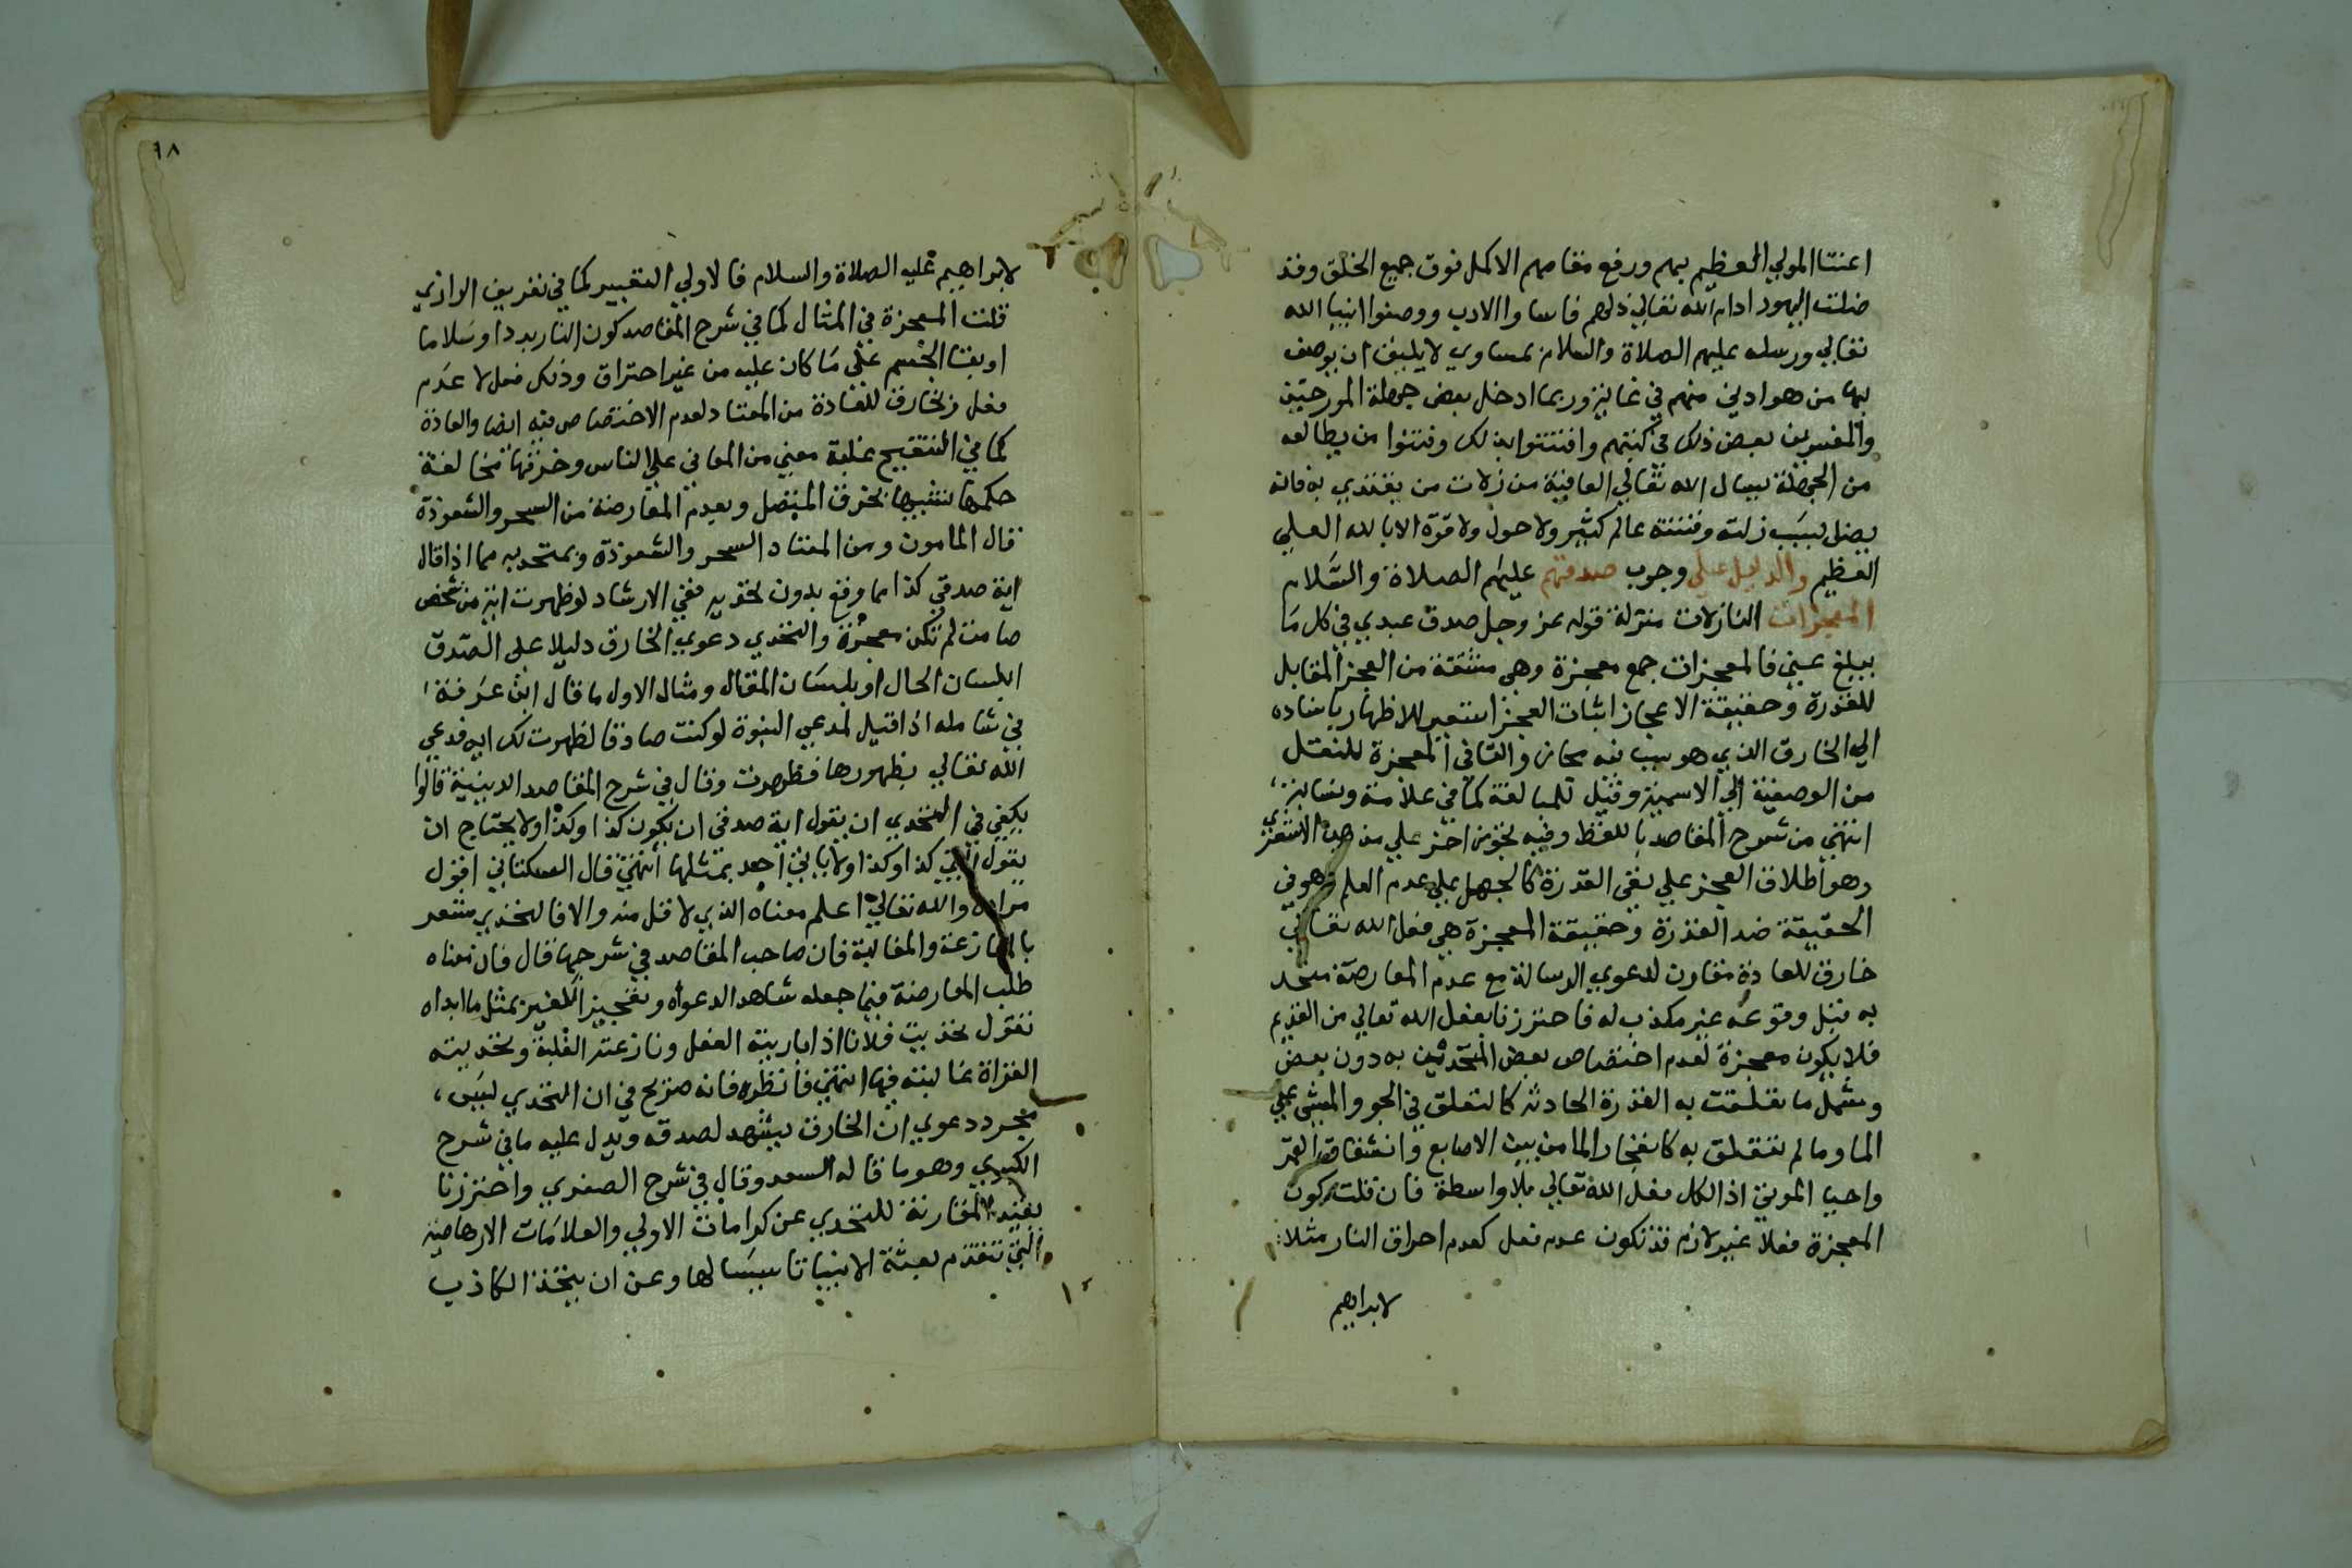 اعتنا المولي العظيم بهم ورفع مقامهم الاكمل فوق جميع الخلق وقد
ضلت اليهود ادام الله تعالي ذلهم فاساوا الادب ووصفوا انبيا الله
تعالي ورسله عليهم الصلاة والسلام بمساوي لا يليق ان يوصف
بها من هو ادني منهم في غاية وربما ادخل بعض جهلة المورخين
والمفسرين بعض ذلك في كتبهم وافتتنوا بذلك وفتنوا من يطالعه
من الجهلة نسال الله تعالي العافية من زلات من يقتدي به فانه
يضل بسبب زلته وفتنته عالم كثير ولا حول ولا قوة الا بالله العلي
العظيم والدليل علي وجوب صدقهم عليهم الصلاة والسلام
المعجزات النازلات منزلة قوله عز وجل صدق عبدي في كل ما
يبلغ عني فالمعجزات جمع معجزة وهي مشتقة من العجز المقابل
للقدرة وحقيقة الاعجاز اثبات العجز استعير للاظهار باسناده
الي الخارق الذي هو سببه مجاز والتا في المعجزة للنقل
من الوصفية الي الاسمية وقيل للمبالغة كما في علامة ونسابة
انتهي من شرح المقاصد باللفظ وفيه تجوز اخر علي مذهب الاشعري
وهو اطلاق العجز علي نفي القدرة كالجهل علي عدم العلم وهو في
الحقيقة ضد القدرة وحقيقة المعجزة هي فعل الله تعالي
خارق للعادة مقارن لدعوي الرسالة مع عدم المعارضة متحد
به قبل وقوعه غير مكذب له فاحترزنا بفعل الله تعالي من القديم
فلا يكون معجزة لعدم اختصاص بعض المتحدثين به دون بعض
وشمل ما تعلقت به القدرة الحادثة كالتعلق في الجو والمشي علي
الما وما لم تتعلق به كانفجار الما من بين الاصابع وانشقاق القمر
واحيا الموتي اذ الكل فعل الله تعالي بلا واسطة فان قلت كون
المعجزة فعلا غير لازم قد تكون عدم فعل كعدم احراق النار مثلا
لابراهيم
٩٨
لابراهيم عليه الصلاة والسلام فالاولي التعبير كما في تعريف الرازي
قلت المعجزة في المثال كما في شرح المقاصد كون النار بردا وسلاما
او بقا الجسم علي ما كان عليه من غير احتراق وذلك فعل لا عدم
فعل وبخارق للعادة من المعتاد لعدم الاختصاص فيه ايضا والعادة
كما في التنقيح غلبة معني من المعاني علي الناس وخرقها مخالفة
حكمها بنقيضها بخرق المتصل وبعدم المعارضة من السحر والشعوذة
قال المامون ومن المعتاد السحر والشعوذة وبمتحد به مما اذا قال
اية صدقي كذا مما وقع بدون تحديه ففي الارشاد لو ظهرت اية من شخص
صامت لم تكن معجزة والتحدي دعوي الخارق دليلا علي الصدق
بلسان الحال او بلسان المقال ومثال الاول ما قال ابن عرفة
في شامله اذا قيل لمدعي النبوة لو كنت صادقا لظهرت لك اية فدعي
الله تعالي بظهورها فظهرت وقال في شرح المقاصد الدينية قالوا
يكفي في التحدي ان يقول اية صدقي ان يكون كذا وكذا ولا يحتاج ان
يقول اتي كذا وكذا ولا ياتي احد بمثلها انتهي قال السكتاني اقول
مراده والله تعالي اعلم معناه الذي لا قل منه والا فالتحدي مشعر
بالمنازعة والمغالبة فان صاحب المقاصد في شرحها قال فان معناه
طلب المعارضة فيما جعله شاهد الدعواه وتعجيز الغير بمثل ما ابداه
تقول تحديت فلانا اذا باريته الفعل ونازعته الغلبة وتحديته
القراة غالبته فيها انتهي فانظره فانه صريح في ان التحدي ليس
مجرد دعوي ان الخارق يشهد لصدقه ويدل عليه ما في شرح
الكبري وهو ما قاله السعد وقال في شرح الصغري واحترزنا
بقيد المقارنة للتحدي عن كرامات الاوليا والعلامات الارهاصية
التي تتقدم بعثة الانبيا تاسيسا لها وعن ان يتخذ الكاذب